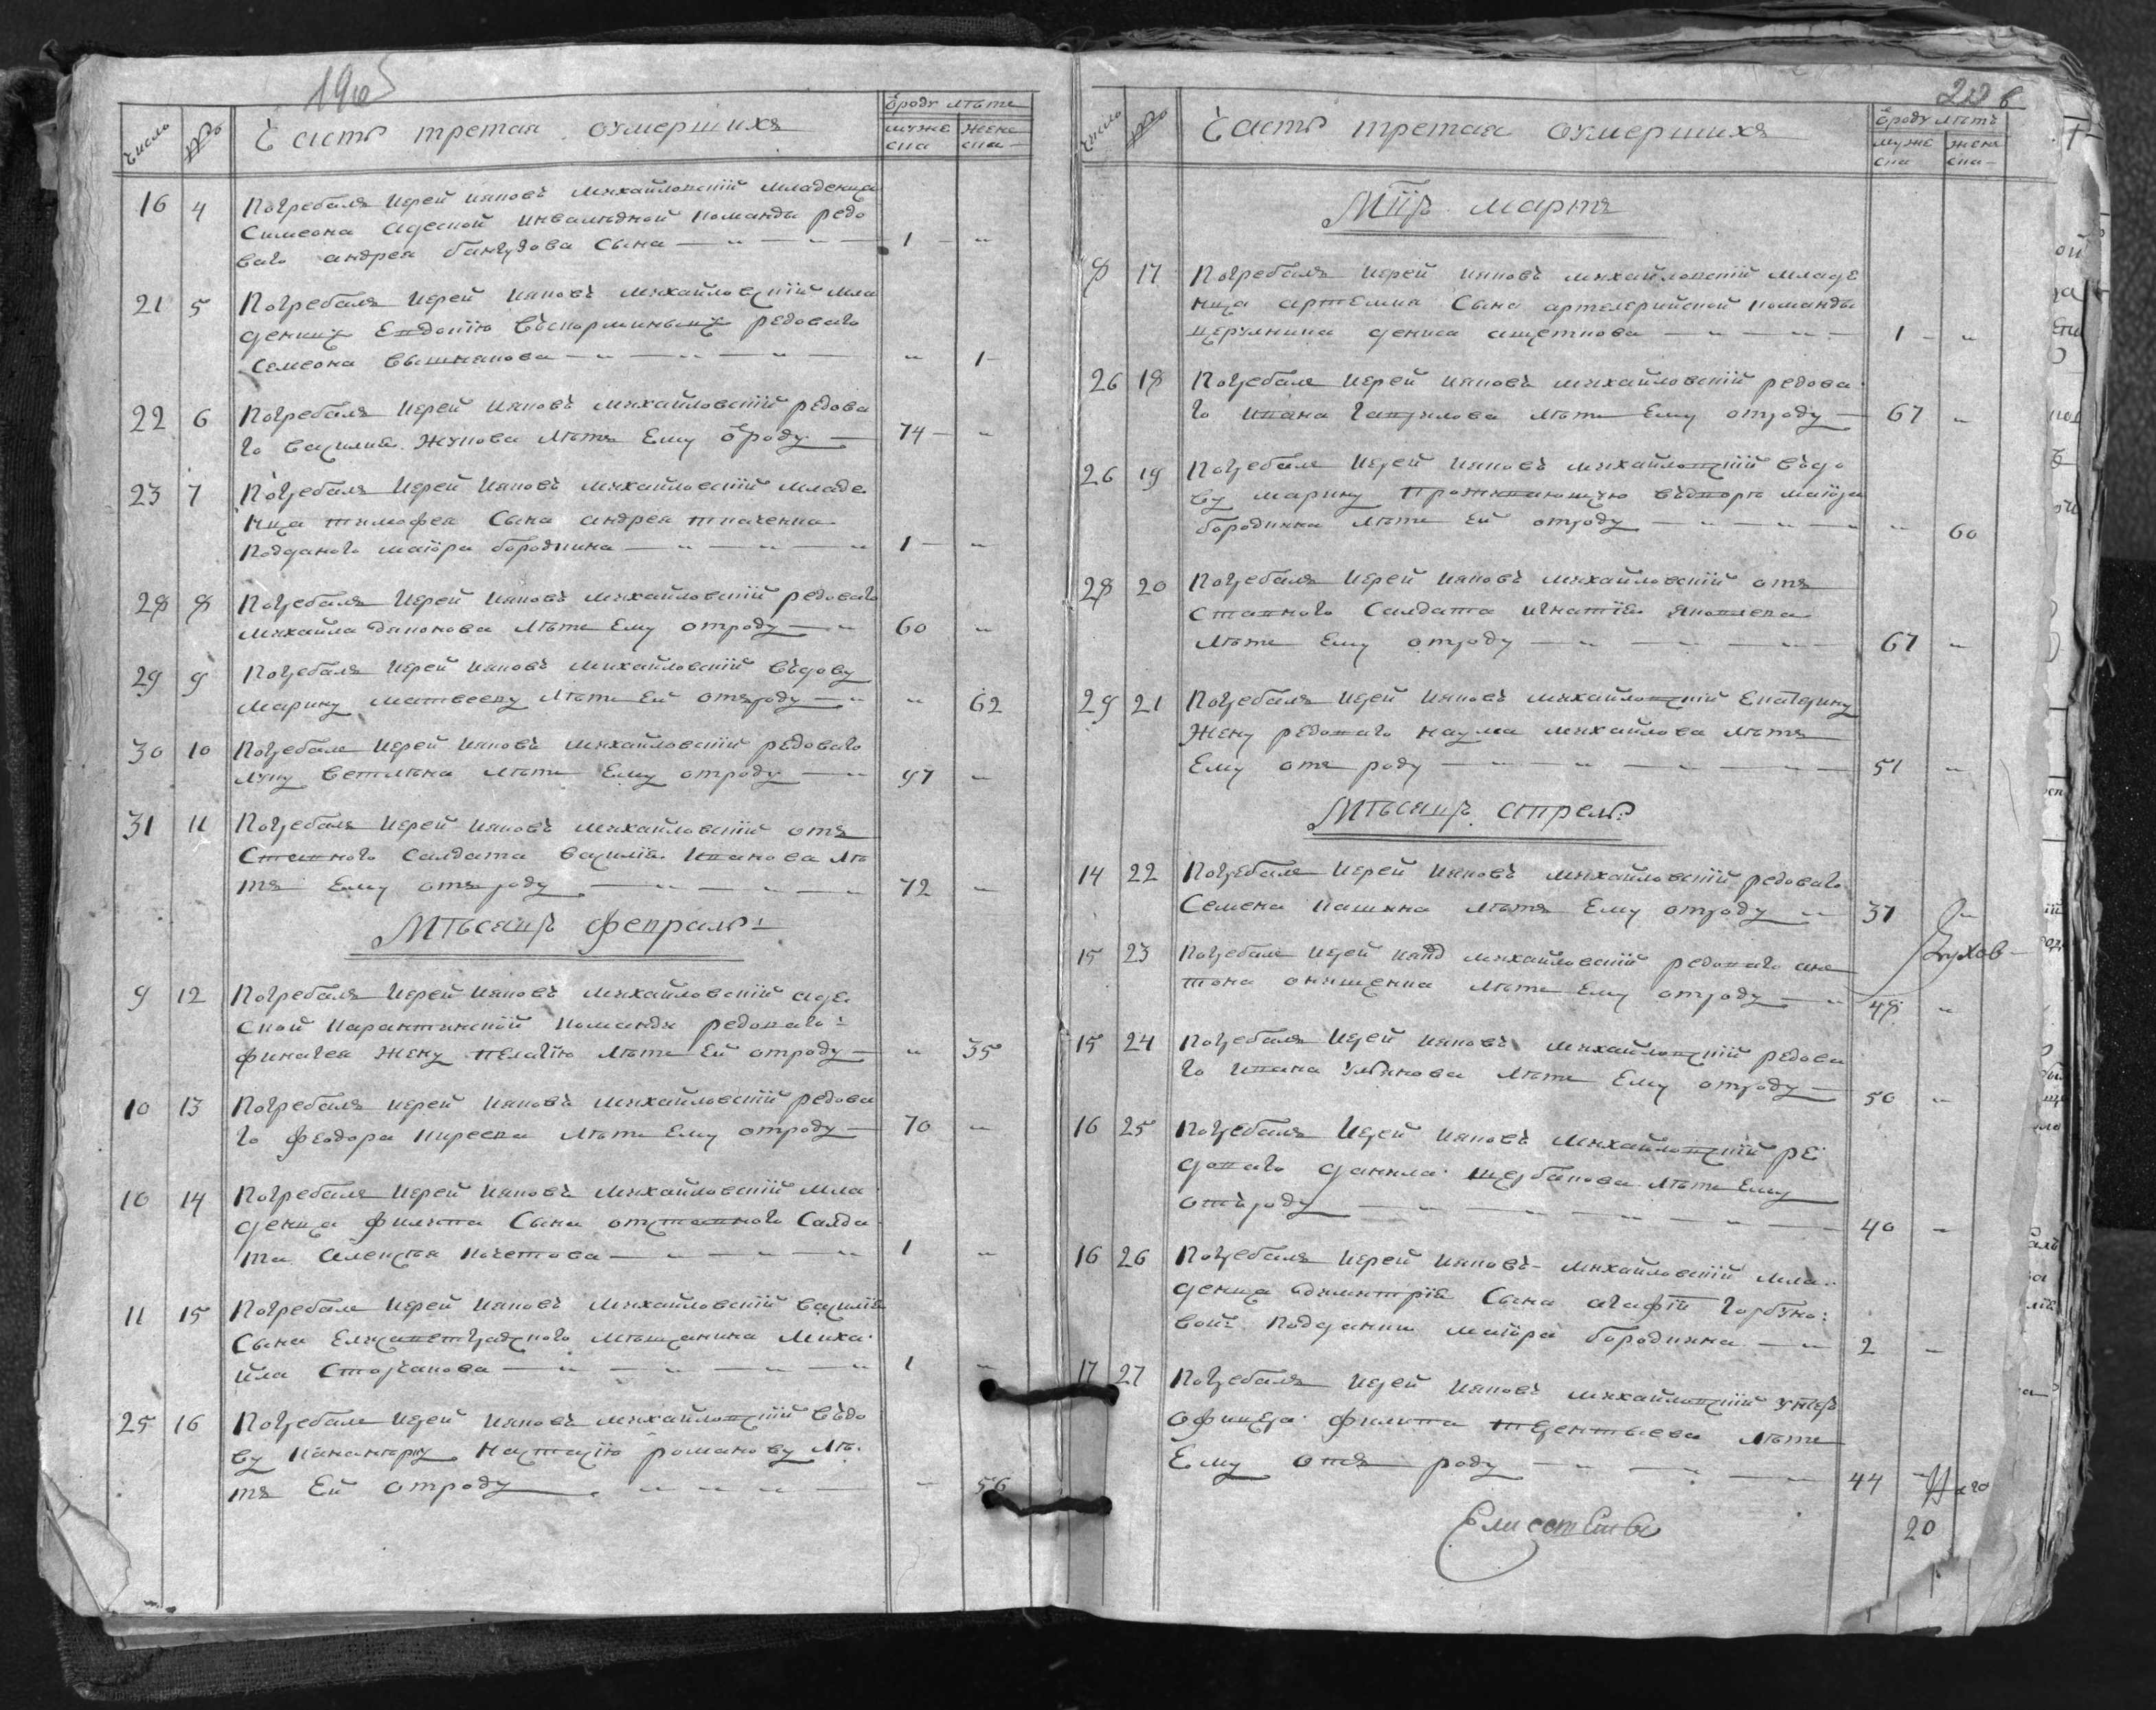 196
Число № Часть третая оумершихъ
ѿроду лѣтъ
муже ска женс ска
16 4 Погребалъ Иерей Ияковъ михайловскій младенца
Симеона адеской инвалидной команды редо
ваго андрея Сына 1 „
21 5 Погребалъ Иерей Ияковъ михайловскій мла
деницу Евдокію редоваго
Семеона Вышнякова „ 1
22 6 Погребалъ Иерей Ияковъ михайловскій редова
го василия Жукова лѣтъ Ему ѿроду 74 „
23 7 Погребалъ Иерей Ияковъ михайловскій младе
нца тимофея Сына андрея ткаченка
подданого маіора бородкина 1 „
28 8 Погребалъ Иерей Ияковъ михайловскій редоваго
михайла лѣтъ Ему отроду 60 „
29 9 Погребалъ Иерей Ияковъ михайловскій въдову
марину матвееву лѣтъ Ей отъроду „ 62
30 10 Погребалъ Иерей Ияковъ михайловскій редоваго
луку лѣтъ Ему отроду 97 „
31 11 Погребалъ Иерей Ияковъ михайловскій отъ
ставного салдата василія иванова лѣ
тъ Ему отъроду 72 „
Мѣсяцъ февраль
9 12 Погребалъ Иерей Ияковъ михайловскій аде
ской карантинской команды редоваго
жену пелагію лѣтъ Ей отроду „ 35
10 13 Погребалъ иерей Ияковъ михайловскій редова
го Феодора киреева лѣтъ Ему отроду 70 „
10 14 Погребалъ Иерей Ияковъ михайловскій мла
денца филипа Сына отставного Салда
та алексѣя 1 „
11 15 Погребалъ Иерей Ияковъ михайловскій василія
Сына Елисаветградского мѣщанина миха
йла Стоянова 1 „
25 16 Погребалъ Иерей Ияковъ михайловскій въдо
ву настасію романову лѣ
тъ Ей отроду „ 56
Число № Часть третая оумершихъ
ѿроду лѣтъ
муже ска женс ска
Мцъ мартъ
8 17 Погребалъ Иерей Ияковъ михайловскій младе
нца артемия Сына артелерийской команды
церулника дениса 1 „
26 18 Погребалъ Иерей Ияковъ михайловскій редова
го ивана гаврилова лѣтъ Ему отроду 67 „
26 19 Погребалъ Иерей Ияковъ михайловскій въдо
ву марину проживающую въдворѣ маіора
бородкина лѣтъ Ей отроду „ 60
28 20 Погребалъ Иерей Ияковъ михайловскій отъ
ставного Салдата игнатія яковлева
лѣтъ Ему отроду 67 „
29 21 Погребалъ Иерей Ияковъ михайловскій Екатерину
Жену редоваго наума михайлова лѣтъ
Ему отъ роду 51 „
Мѣсяцъ апрель
14 22 Погребалъ Иерей Ияковъ михайловскій редоваго
Семена лѣтъ Ему отроду 37 „
15 23 Погребалъ Иерей михайловскій редоваго ан
тона онищенка лѣтъ Ему отроду 48 „
15 24 Погребалъ Иерей Ияковъ михайловскій редова
го ивана Улянова лѣтъ Ему отроду 50 „
16 25 Погребалъ Иерей Ияковъ михайловскій ре
доваго данила щербакова лѣтъ Ему
отъроду 40 „
16 26 Погребалъ Иерей Ияковъ михайловскій мла
денца адмитрія Сына агафіи горбуно
вой подданки маіора бородкина 2 „
17 27 Погребалъ Иерей Ияковъ михайловскій унтеръ
офицера филипа терентьева лѣтъ
Ему отъ роду 44 „
20